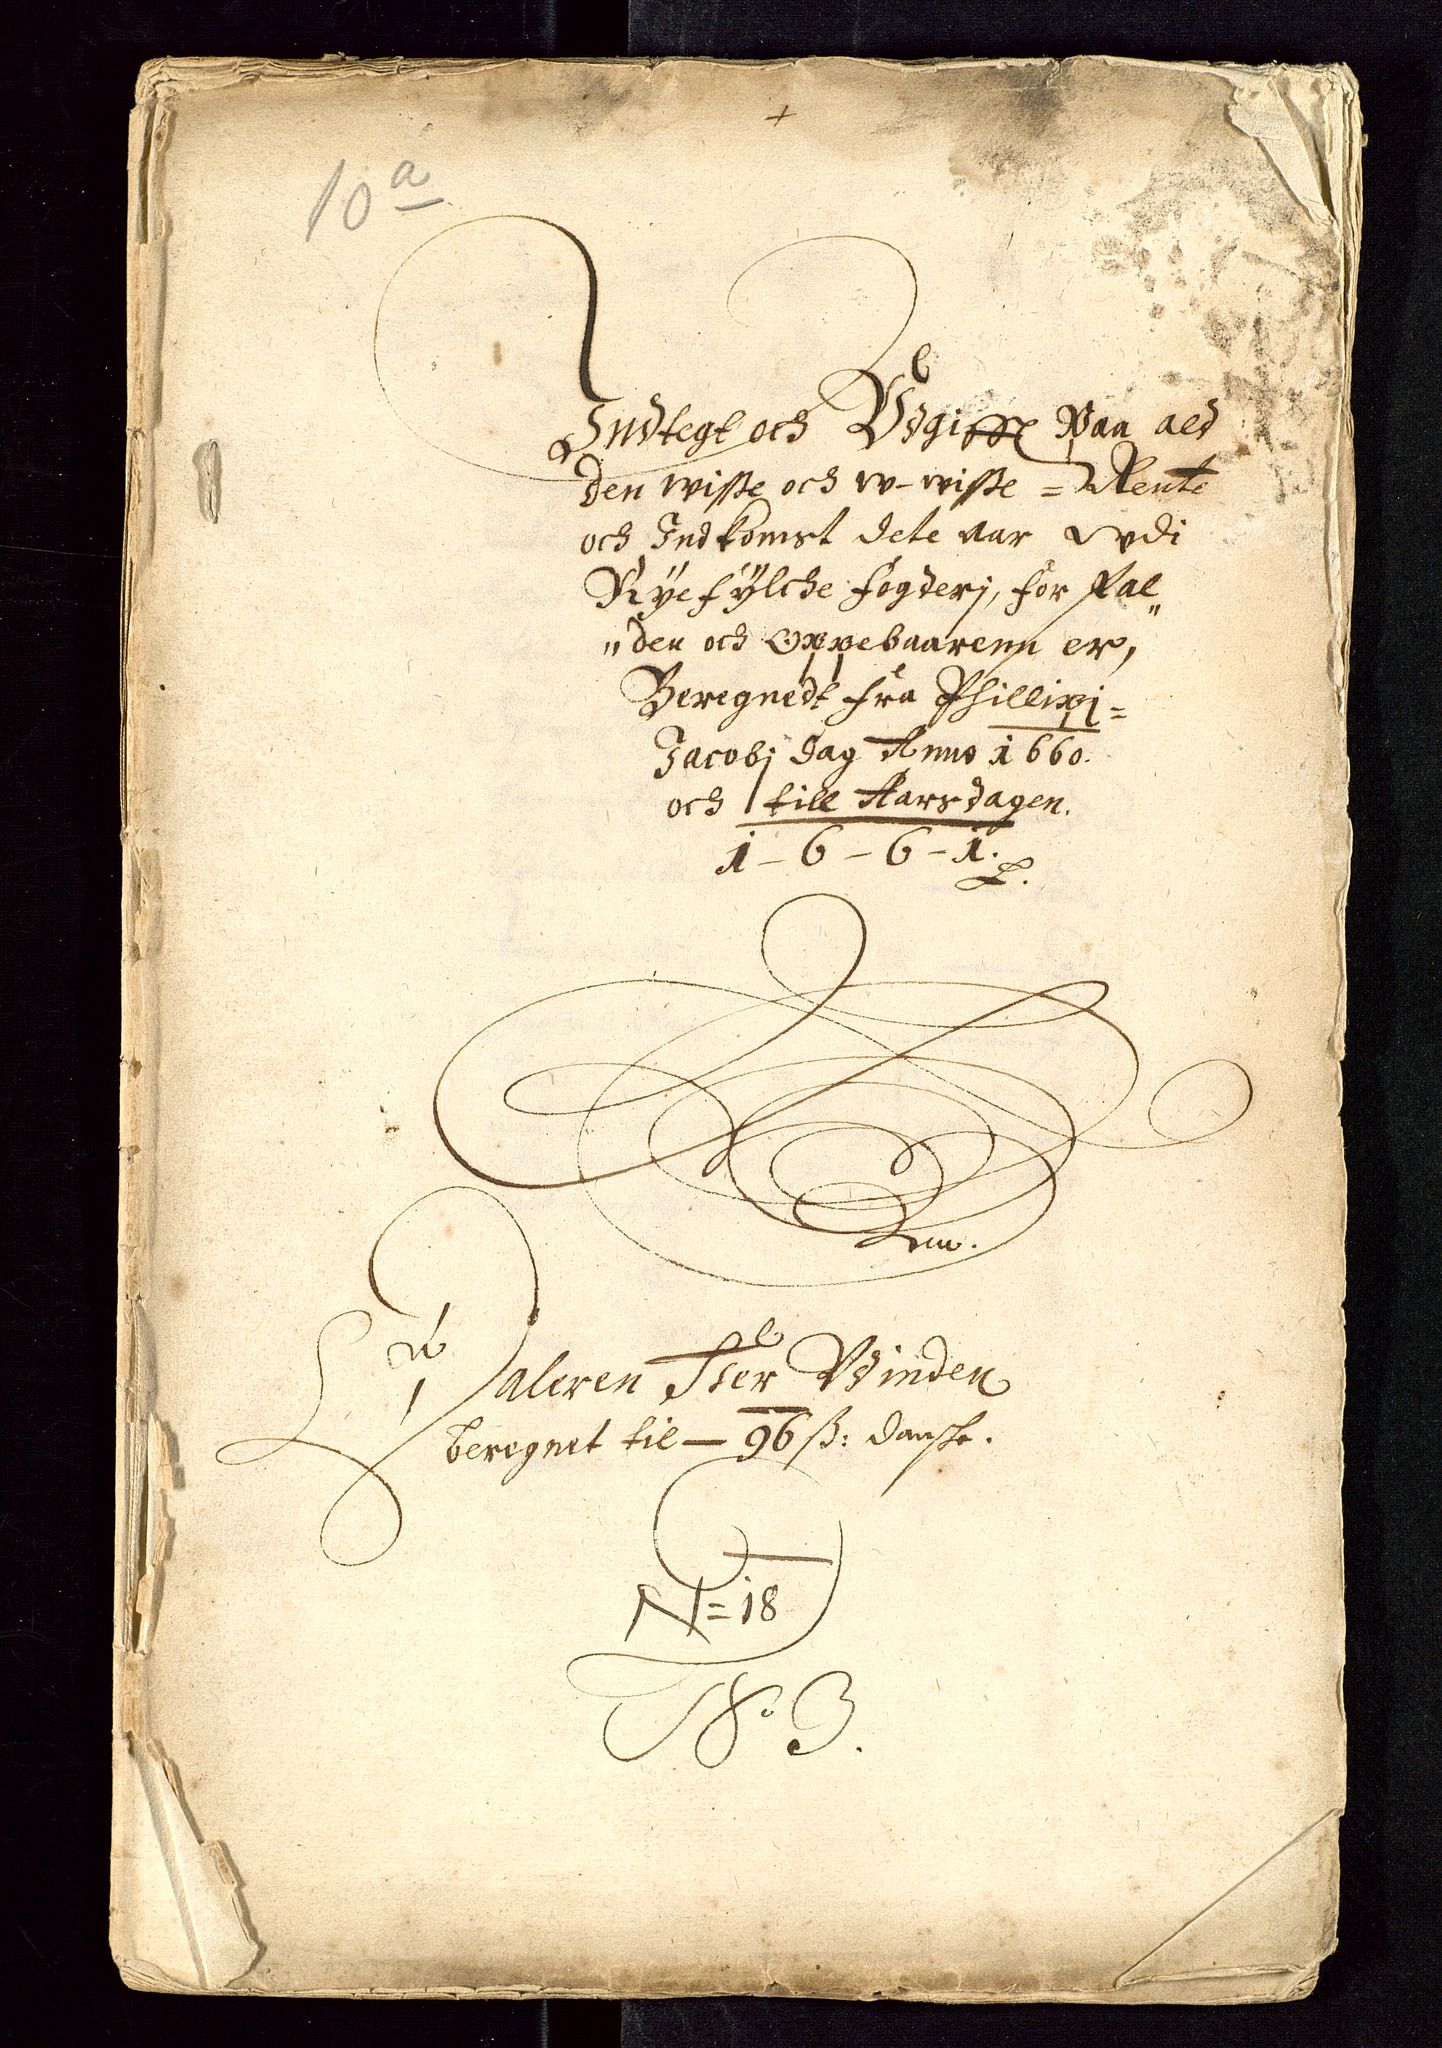 10 a
Indtegt och Vdgifft Paa ald
den wisse och w-wisse = Rente
och Indkomst dete aar udi
Ryefylche fogderj, for fal„
„den och oppebaarenn er,
Beregnedt fra Phillipj=
Jacobj dag Anno 1660.
och till Aarsdagen.
1-6-6-1.
daleren Her Vdinden
beregnet til — 96 ß: danske.
N=18
N: 3.